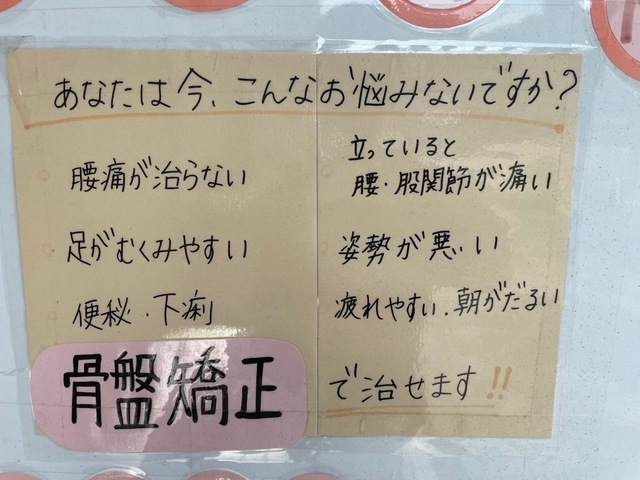 あなたは今、こんなお悩みないですか?
腰痛が治らない
足がむくみやすい
便秘・下痢
立っていると
腰・股関節が痛い
姿勢が悪い
疲れやすい、朝がだるい
骨盤矯正
で治せます!!